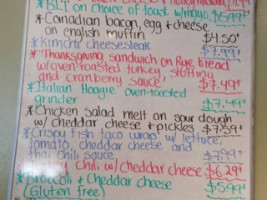 *BLT on choice of toast w/mayo $6.99!
*Canadian bacon, egg + cheese
on english muffin $4.50!
*Kimchi cheesesteak $7.99!
*"Thanksgiving sandwich on Rye bread
w/oven-roasted turkey, stuffing
and cranberry sauce" $7.49!
*Italian Hoagie oven-toasted
grinder $7.49!
*Chicken Salad melt on sour dough
w/ cheddar cheese + pickles $7.59!
*Crispy fish taco wrap w/ lettuce,
tomato, cheddar cheese and
thai Chili sauce $7.99!
Chili w/ Cheddar cheese $6.29!
*Broccoli + Cheddar cheese
(Gluten free) $5.99!